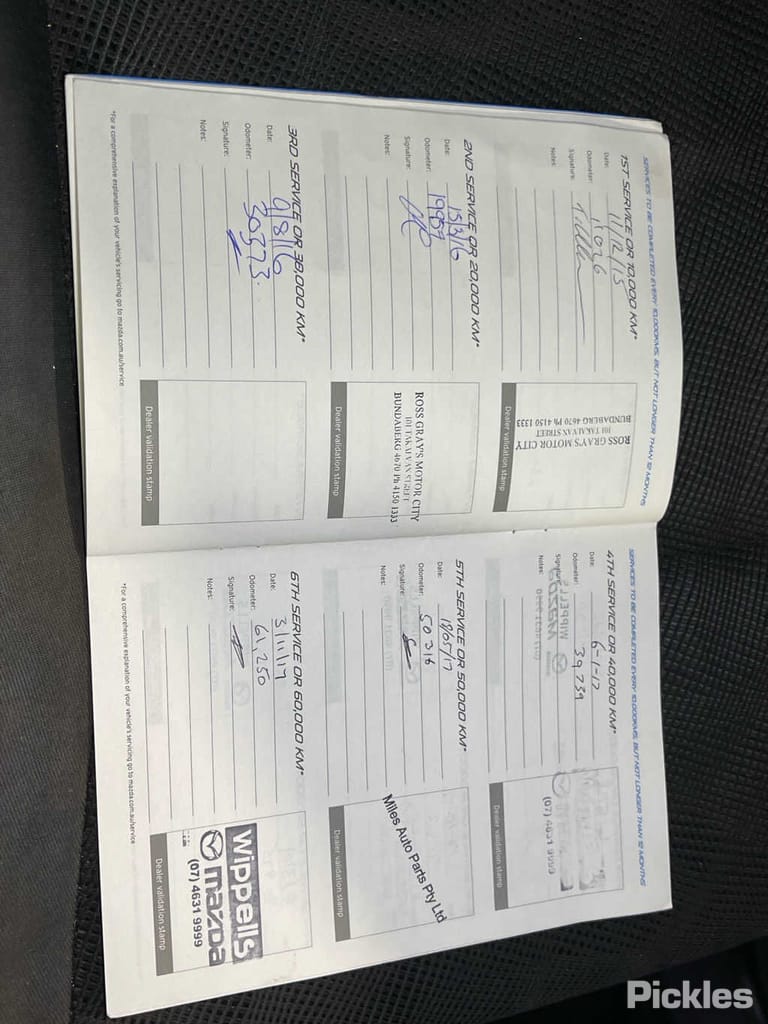 SERVICES TO BE COMPLETED EVERY 10,000KMS, BUT NOT LONGER THAN 12 MONTHS
1ST SERVICE OR 10,000 KM*
Date: 11/12/15
Odometer: 11026
Signature:
Notes:
ROSS GRAY'S MOTOR CITY
101 TAKALVAN STREET
BUNDABERG 4670 Ph 4150 1333
Dealer validation stamp
2ND SERVICE OR 20,000 KM*
Date: 15/3/16
Odometer: 19989
Signature:
Notes:
ROSS GRAY'S MOTOR CITY
101 TAKALVAN STREET
BUNDABERG 4670 Ph 4150 1333
Dealer validation stamp
3RD SERVICE OR 38,000 KM*
Date: 9/8/16
Odometer: 30573
Signature:
Notes:
Dealer validation stamp
*For a comprehensive explanation of your vehicle's servicing go to mazda.com.au/service
SERVICES TO BE COMPLETED EVERY 10,000KMS, BUT NOT LONGER THAN 12 MONTHS
4TH SERVICE OR 40,000 KM*
Date: 6-1-17
Odometer: 39739
Signature:
Notes:
WIPPELLS
mazda
(07) 4631 9999
Dealer validation stamp
5TH SERVICE OR 50,000 KM*
Date: 18/05/17
Odometer: 50 216
Signature:
Notes:
Miles Auto Parts Pty Ltd
Dealer validation stamp
6TH SERVICE OR 60,000 KM*
Date: 3/11/17
Odometer: 61,250
Signature:
Notes:
Wippells
mazda
(07) 4631 9999
Dealer validation stamp
*For a comprehensive explanation of your vehicle's servicing go to mazda.com.au/service
Pickles